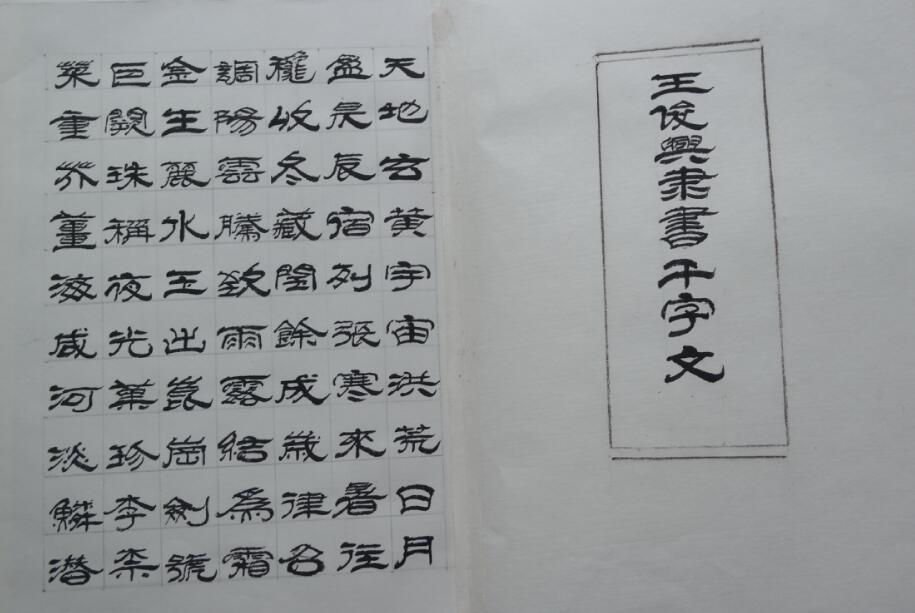 王俊興隶書千字文
天地玄黄宇宙洪荒日月
盈昃辰宿列張寒來暑往
穐收冬藏閏餘成歲律召
調陽雲騰致雨露結為霜
金生麗水玉出崑崗劍號
巨闕珠稱夜光菓珍李柰
菜重芥薑海咸河淡鱗潛